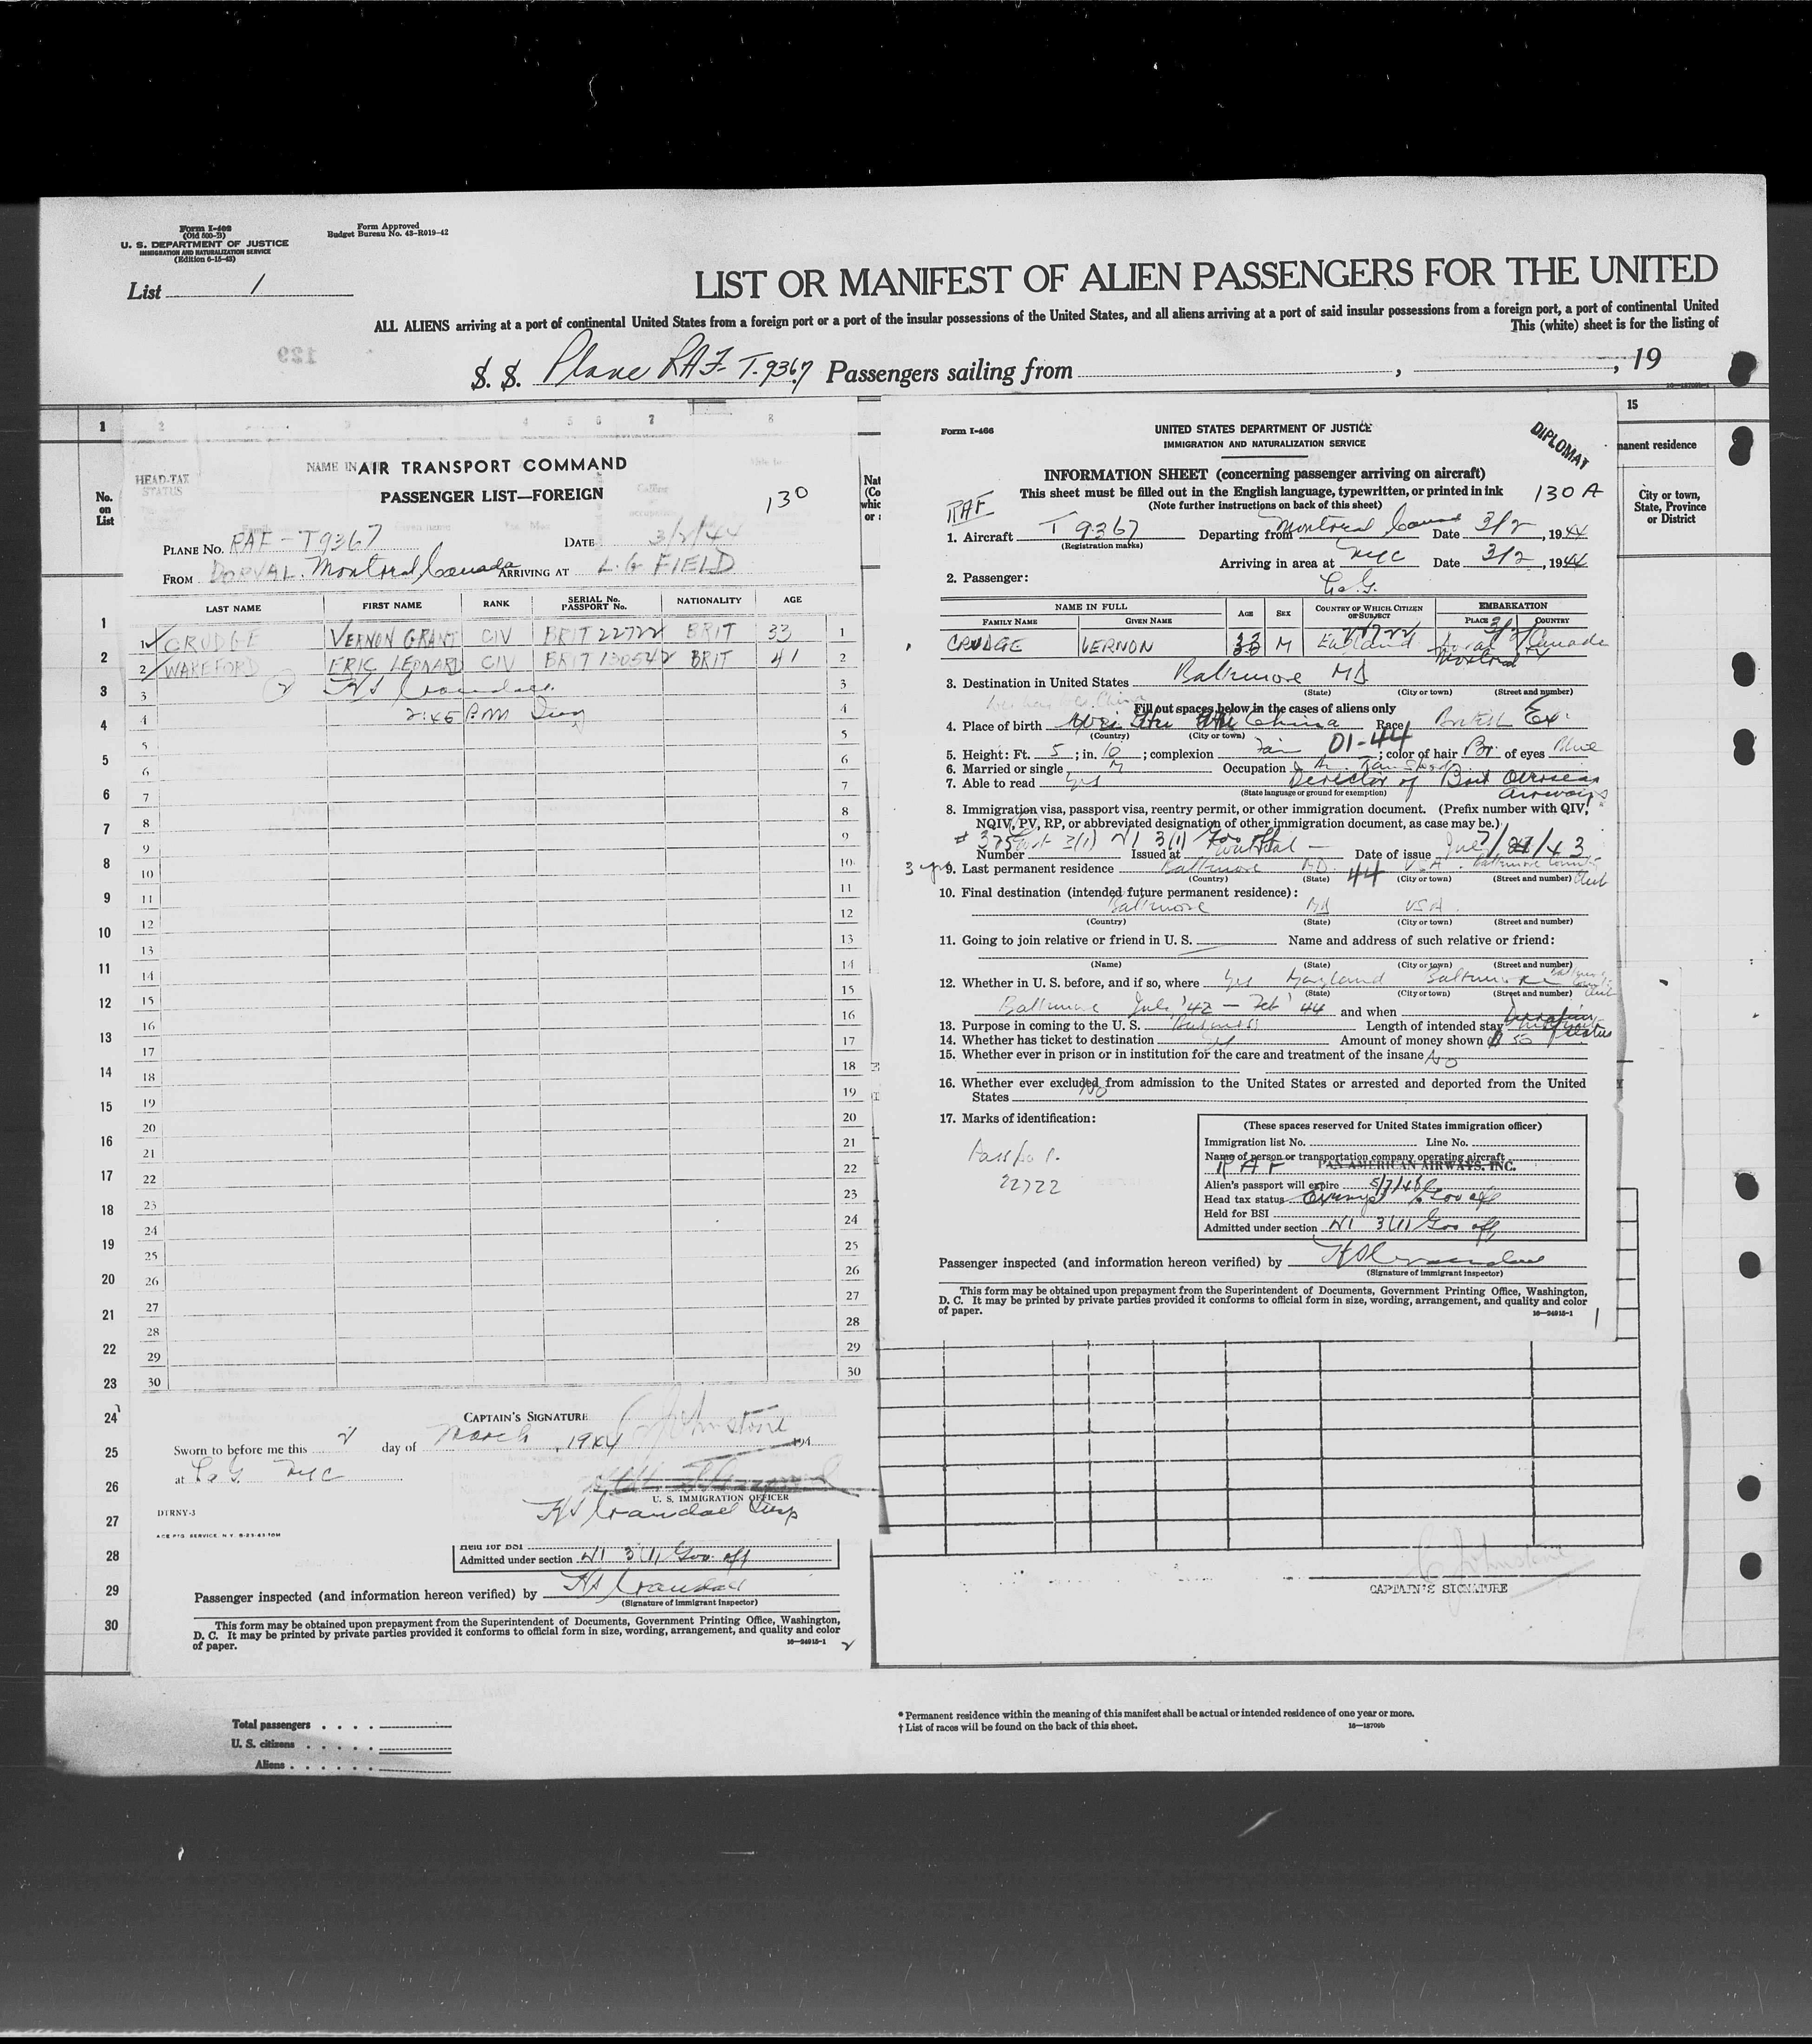 Form I-402
(Old 500-B)
U. S. DEPARTMENT OF JUSTICE
IMMIGRATION AND NATURALIZATION SERVICE
(Edition 6-15-43)
Form Approved
Budget Bureau No. 43-R019-42
List 1
LIST OR MANIFEST OF ALIEN PASSENGERS FOR THE UNITED
ALL ALIENS arriving at a port of continental United States from a foreign port or a port of the insular possessions of the United States, and all aliens arriving at a port of said insular possessions from a foreign port, a port of continental United
This (white) sheet is for the listing of
S. S. Plane RAF T.9367 Passengers sailing from , , 19
1
No. on List
HEAD-TAX STATUS
NAME IN
AIR TRANSPORT COMMAND
PASSENGER LIST—FOREIGN
130
PLANE No. RAF - T9367 DATE 3/2/44
FROM DORVAL. Montreal Canada ARRIVING AT L.G FIELD
LAST NAME FIRST NAME RANK SERIAL No. PASSPORT No. NATIONALITY AGE
1 CRUDGE VERNON GRANT CIV BRIT 22722 BRIT 33 1
2 WAKEFORD ERIC LEONARD CIV BRIT 130542 BRIT 41 2
3 2 HS Crandall 3
4 2:45 P.M Insp 4
5 5
6 6
7 7
8 8
9 9
10 10
11 11
12 12
13 13
14 14
15 15
16 16
17 17
18 18
19 19
20 20
21 21
22 22
23 23
24 24
25 25
26 26
27 27
28 28
29 29
30 30
1
2
3
4
5
6
7
8
9
10
11
12
13
14
15
16
17
18
19
20
21
22
23
24
25
26
27
28
29
30
CAPTAIN'S SIGNATURE C Johnstone
Sworn to before me this 2 day of March, 1944
at La G. NYC
U. S. IMMIGRATION OFFICER
HS Crandall Insp
DTRNY-3
ACE PTG SERVICE N.Y. 8-23-43 10M
Held for BSI
Admitted under section NI 3(1) Gov. off
Passenger inspected (and information hereon verified) by HS Crandall
(Signature of immigrant inspector)
This form may be obtained upon prepayment from the Superintendent of Documents, Government Printing Office, Washington,
D. C. It may be printed by private parties provided it conforms to official form in size, wording, arrangement, and quality and color
of paper.
16—24915-1
2
Total passengers
U. S. citizens
Aliens
Form I-466
UNITED STATES DEPARTMENT OF JUSTICE
IMMIGRATION AND NATURALIZATION SERVICE
DIPLOMAT
INFORMATION SHEET (concerning passenger arriving on aircraft)
This sheet must be filled out in the English language, typewritten, or printed in ink
(Note further instructions on back of this sheet)
130 A
RAF
1. Aircraft T 9367 Departing from Montreal Canad Date 3/2, 1944
(Registration marks)
Arriving in area at NYC Date 3/2, 1944
La G.
2. Passenger:
NAME IN FULL AGE SEX COUNTRY OF WHICH CITIZEN OR SUBJECT EMBARKATION
FAMILY NAME GIVEN NAME PLACE COUNTRY
22722 3/2
CRUDGE VERNON 33 M England Dorval Canada
Montreal
3. Destination in United States Baltimore MD
(State) (City or town) (Street and number)
Fill out spaces below in the cases of aliens only
4. Place of birth China Race British
(Country) (City or town)
5. Height: Ft. 5; in. 10; complexion Fair; color of hair Br. of eyes Blue
01-44
6. Married or single M Occupation Director of Brit Overseas Airways
7. Able to read Yes
(State language or ground for exemption)
8. Immigration visa, passport visa, reentry permit, or other immigration document. (Prefix number with QIV,
NQIV, PV, RP, or abbreviated designation of other immigration document, as case may be.)
Number 3(1) Issued at Montreal Date of issue
3 yrs 9. Last permanent residence Baltimore MD. USA. Baltimore Country Club
44
(Country) (State) (City or town) (Street and number)
10. Final destination (intended future permanent residence):
Baltimore MD USA.
(Country) (State) (City or town) (Street and number)
11. Going to join relative or friend in U. S. Name and address of such relative or friend:
(Name) (State) (City or town) (Street and number)
12. Whether in U. S. before, and if so, where Yes Maryland Baltimore
(State) (City or town) (Street and number)
Baltimore July '42 — Feb '44 and when
13. Purpose in coming to the U. S. Business Length of intended stay
14. Whether has ticket to destination Yes Amount of money shown $ 50
15. Whether ever in prison or in institution for the care and treatment of the insane NO
16. Whether ever excluded from admission to the United States or arrested and deported from the United
States NO
17. Marks of identification:
Passport.
22722
(These spaces reserved for United States immigration officer)
Immigration list No. Line No.
Name of person or transportation company operating aircraft
RAF PAN AMERICAN AIRWAYS, INC.
Alien's passport will expire 5/7/46
Head tax status Exempt Gov off
Held for BSI
Admitted under section NI 3(1) Gov off
Passenger inspected (and information hereon verified) by HS Crandall
(Signature of immigrant inspector)
This form may be obtained upon prepayment from the Superintendent of Documents, Government Printing Office, Washington,
D. C. It may be printed by private parties provided it conforms to official form in size, wording, arrangement, and quality and color
of paper.
16—24915-1
1
15
manent residence
City or town, State, Province or District
C Johnstone
CAPTAIN'S SIGNATURE
* Permanent residence within the meaning of this manifest shall be actual or intended residence of one year or more.
† List of races will be found on the back of this sheet.
16—18709b